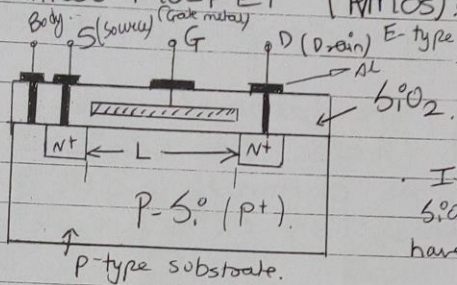 (NMOS).
Body. S(Source) (Gate metal) G D (Drain) E-type
Al
SiO2.
N+ L N+
P-Si (p+).
p-type substrate.
have